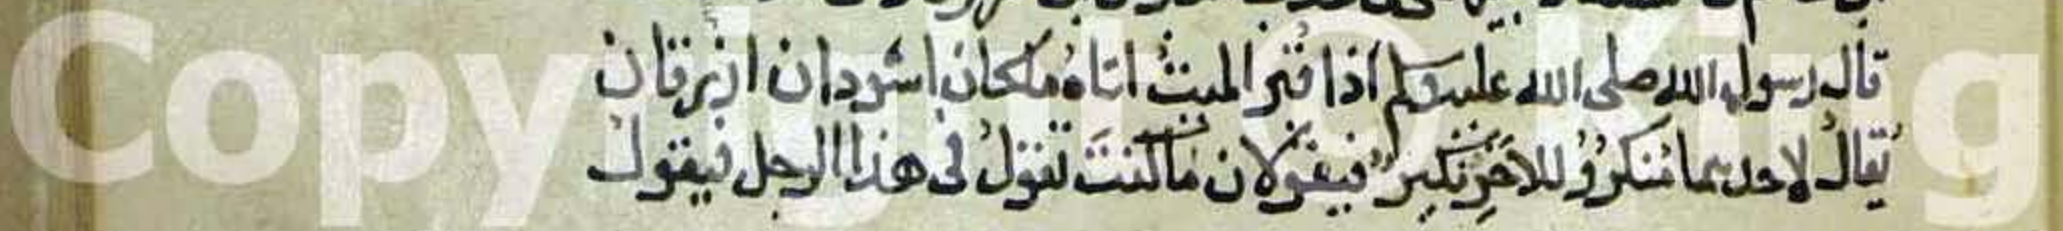 قال رسول الله صلى الله عليه وسلم اذا قبر الميت اتاه ملكان اسودان ازرقان
يقال لاحدهما منكر وللاخر نكير فيقولان ما كنت تقول فى هذا الرجل فيقول
Copy © King